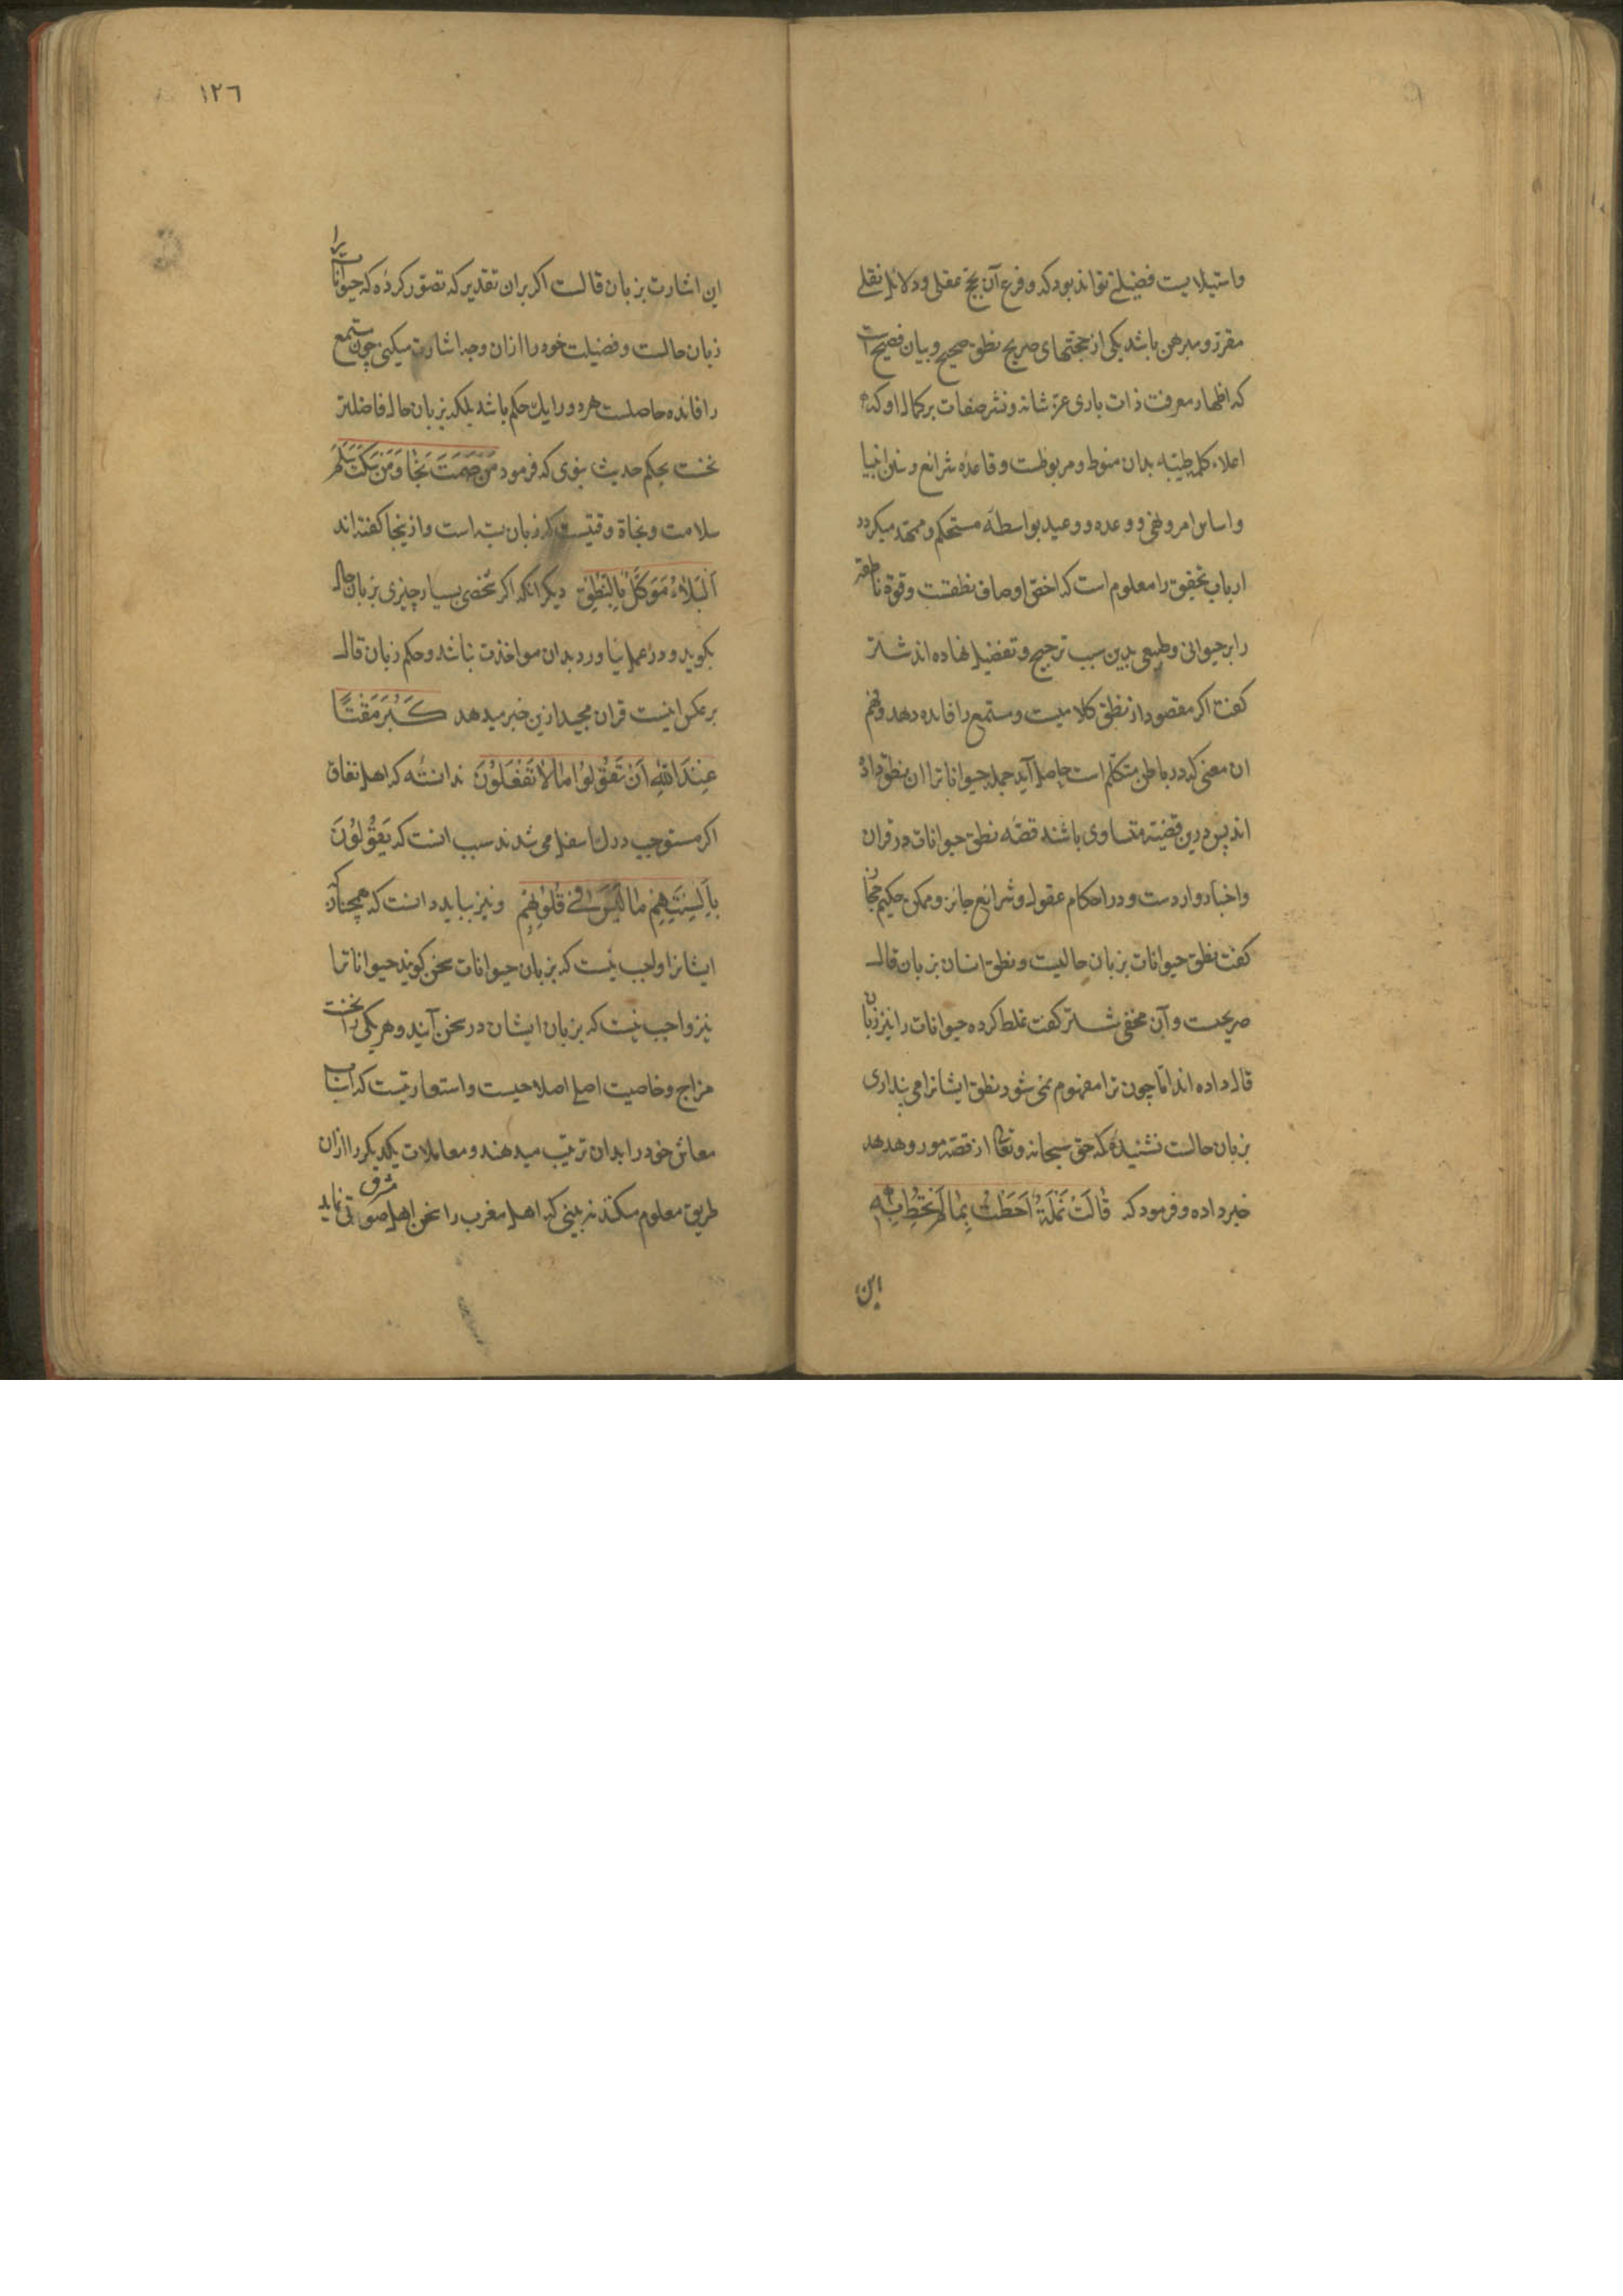 واستیلا یست فضیلتی تواند بود که و فرع آن بحجج عقلی و دلائل نقلی
مقرر و مبرهن باشد یکی از حجتهای صریح نطق صحیح و بیان فصیح است
که اظهار معرفت ذات باری عز شانه و نشر صفات بر کمال او که
اعلاء کلمه طیبه بدان منوط و مربوطست و قاعده شرائع و سنن انبیا
و اساس امر و نهی و وعده و وعید بواسطه مستحکم و ممهد میکردد
ارباب تحقیق را معلوم است که اخص اوصاف نطقست و قوة ناطقه
را بر حیوانی و طبیعی بدین سبب ترجیح و تفضیل نهاده اند شتر
کفت اکر مقصود از نطق کلامیست و مستمع را فایده دهد و فهم
ان معنی که در باطن متکلم است حاصل آید جمله حیواناترا ان نطق داده
اند پس درین قضیه متساوی باشند قصه نطق حیوانات در قران
و اخبار واردست و در احکام عقول و شرائع جائز و ممکن حکیم حجاز
کفت نطق حیوانات بزبان حالیست و نطق انسان بزبان قال
صریحست و آن مخفی شتر کفت غلط کرده حیوانات را نیز زبان
قال داده اند اما چون ترا مفهوم نمی شود نطق ایشانرا می پنداری
بزبان حالست نشنیده که حق سبحانه و تعالی از قصه مور و هدهد
خبر داده و فرمود که قَالَتْ نَمْلَةٌ اَحَطْتُ بِمَا لَمْ تُحِطْ بِهِ
این
١٢٦
این اشارت بزبان قالست اکر بران تقدیر که تصور کرده که حیواناترا
زبان حالست و فضیلت خود را ازان وجه اشارت میکنی چون مستمع
را فائده حاصلست هر دو را یک حکم باشد بلکه زبان حال فاضلتر
نخست بحکم حدیث نبوی که فرمود مَنْ صَمَتَ نَجَا وَمَنْ سَكَتَ سَلِمَ
سلامت و نجاة وقتیست که زبان بسته است و ازینجا کفته اند
اَلْبَلَاءُ مُوَكَّلٌ بِالنُّطْقِ دیکر انکه اکر شخصی بسیار چیزی بزبان حال
بکوید و در عمل نیاورد بدان مواخذت نباشد و حکم زبان قال
بر عکس اینست قران مجید ازین خبر میدهد كَبُرَ مَقْتًا
عِنْدَ اللهِ اَنْ تَقُوْلُوْا مَا لَا تَفْعَلُوْنَ ندانسته که اهل نفاق
اکر مستوجب درک اسفل می شدند سبب انست که يَقُوْلُوْنَ
بِاَلْسِنَتِهِمْ مَا لَيْسَ فِیْ قُلُوْبِهِمْ و نیز بباید دانست که همچنان که
ایشانرا واجب نیست که بزبان حیوانات سخن کویند حیواناترا
نیز واجب نیست که بزبان ایشان در سخن آیند و هر یکی را
مزاج و خاصیت اصل اصلاحیست و استعارتیست که اسباب
معاش خود را بدان ترتیب میدهند و معاملات یکدیکر را ازان
طریق معلوم میکنند نه بینی که اهل مغرب را سخن اهل مشرق صوتی نماید